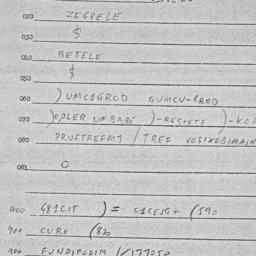 020 ZEGPELE
030 $
040 BETELE
050 $
060 ) UMC1GROD GUMCU-GROD
070 )OPLER UNBARE )-RESTETE )-KOP
080 PRUFTREEMT / TREE VOSIXOBIMAIN
081 O
400 G81CIT ) = G1CEJG+ (590
900 CURE (820
900 FUNDIFODIM 1/177050